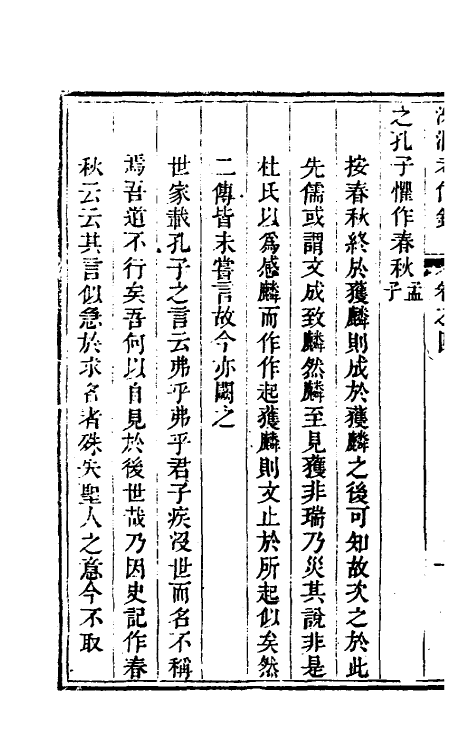 洙泗考信錄　卷之四
之孔子懼作春秋孟子
按春秋終於獲麟則成於獲麟之後可知故次之於此
先儒或謂文成致麟然麟至見獲非瑞乃災其說非是
杜氏以爲感麟而作作起獲麟則文止於所起似矣然
二傳皆未嘗言故今亦闕之
世家載孔子之言云弗乎弗乎君子疾沒世而名不稱
焉吾道不行矣吾何以自見於後世哉乃因史記作春
秋云云其言似急於求名者殊失聖人之意今不取